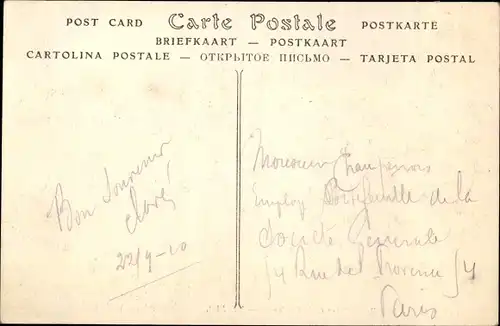 POST CARD Carte Postale POSTKARTE
BRIEFKAART — POSTKAART
CARTOLINA POSTALE — ОТКРЫТОЕ ПИСЬМО — TARJETA POSTAL
Bon Souvenir
22/9-10
Monsieur
Employé Portefeuille de la
Société Generale
54 Rue de Provence 54
Paris